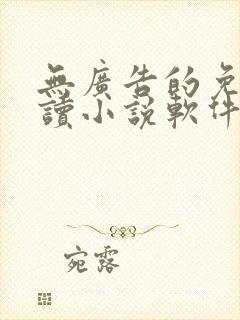 無廣告的免
讀小説軟件
宛露